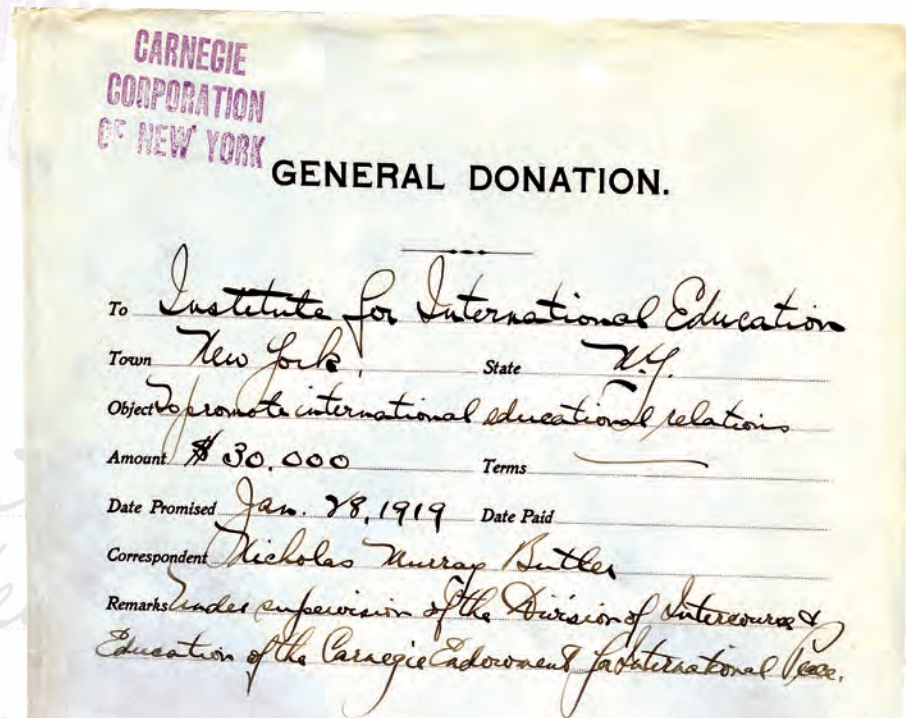 CARNEGIE
CORPORATION
OF NEW YORK
GENERAL DONATION.
To Institute for International Education
Town New York, State N.Y.
Object To promote international educational relations
Amount $ 30.000 Terms
Date Promised Jan. 28, 1919 Date Paid
Correspondent Nicholas Murray Butler
Remarks Under supervision of the Division of Intercourse &
Education of the Carnegie Endowment for International Peace.